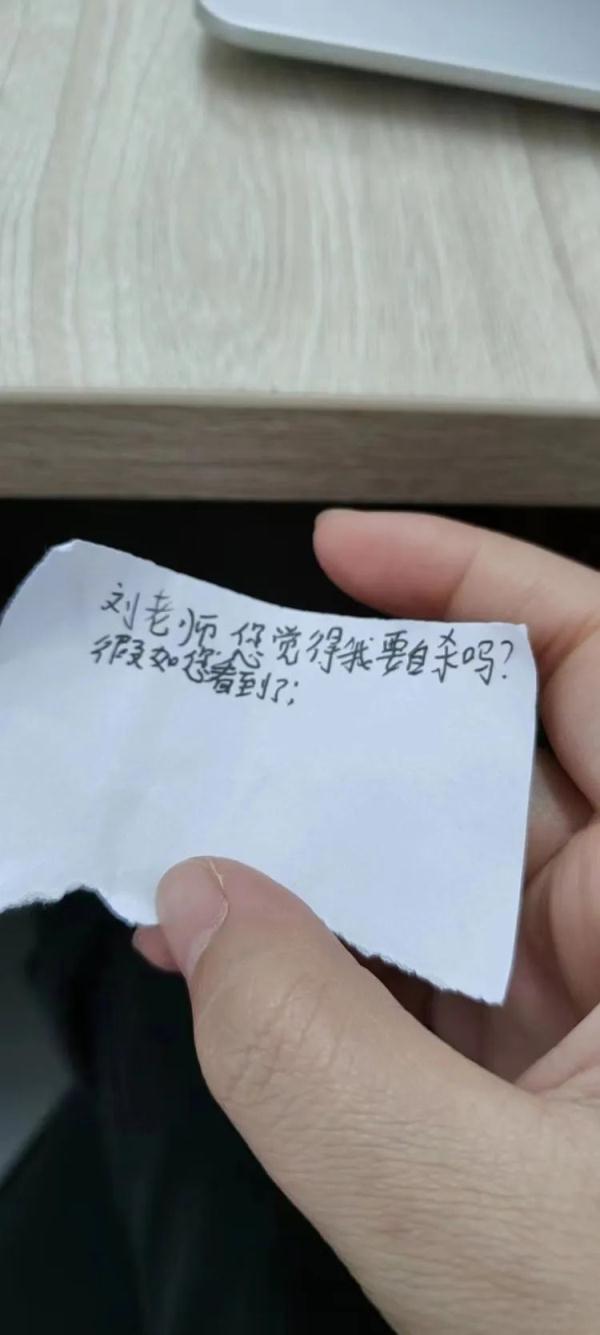 刘老师 你觉得我要自杀吗？
假如您看到了；